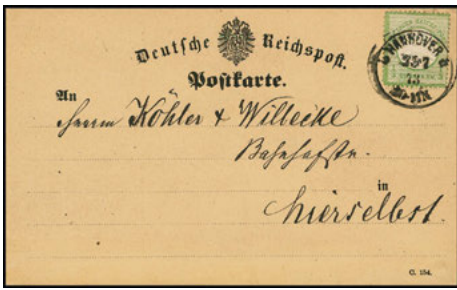 Deutsche Reichspost.
Postkarte.
HANNOVER
73
An
Herrn Köhler & Willecke
Bahnhofstr.
in
hierselbst.
C. 154.